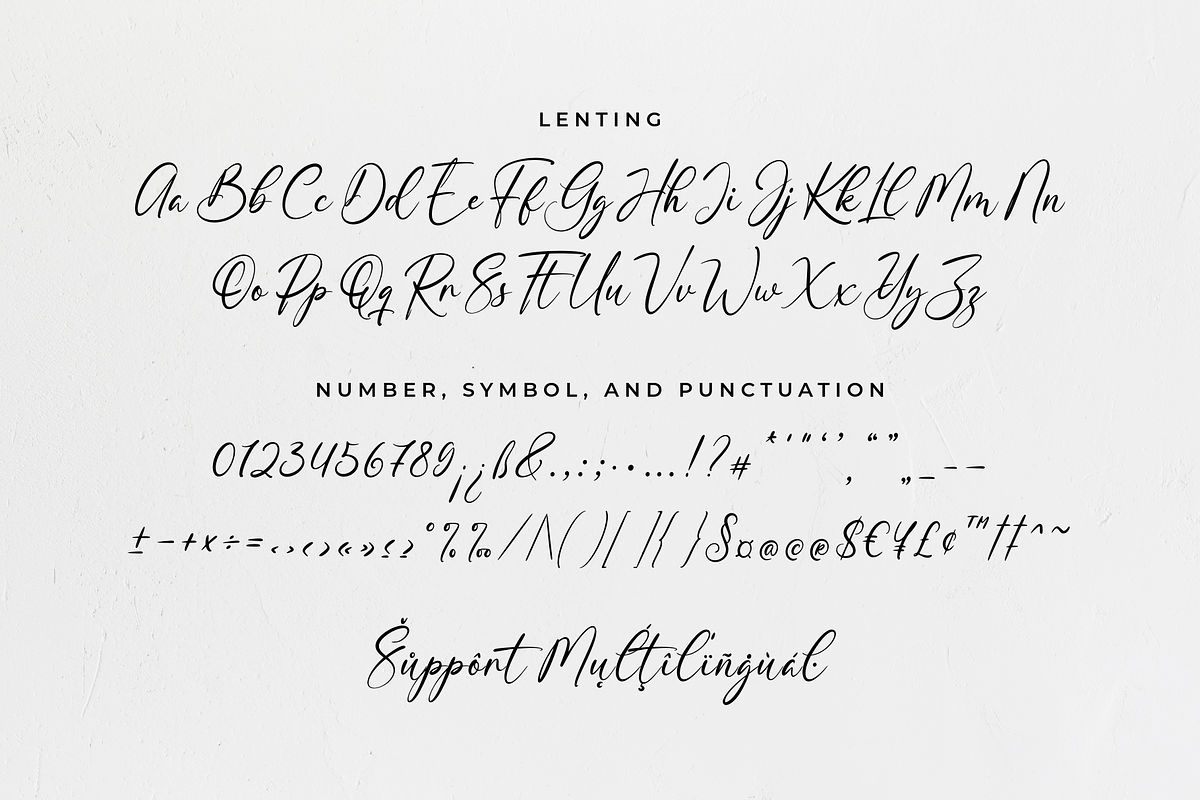 LENTING
Aa Bb Cc Dd Ee Ff Gg Hh Ii Jj Kk Ll Mm Nn
Oo Pp Qq Rr Ss Tt Uu Vv Ww Xx Yy Zz
NUMBER, SYMBOL, AND PUNCTUATION
0123456789¡¿ß&.,:;·•…!?#*'"‘’‚“”„_–—
±−+×÷=‹›<>«»≤≥°%‰/|\()[]{}§¤@©®$€¥£¢™†‡^~
Šůppôrt Mụĺţîlïñġùáŀ